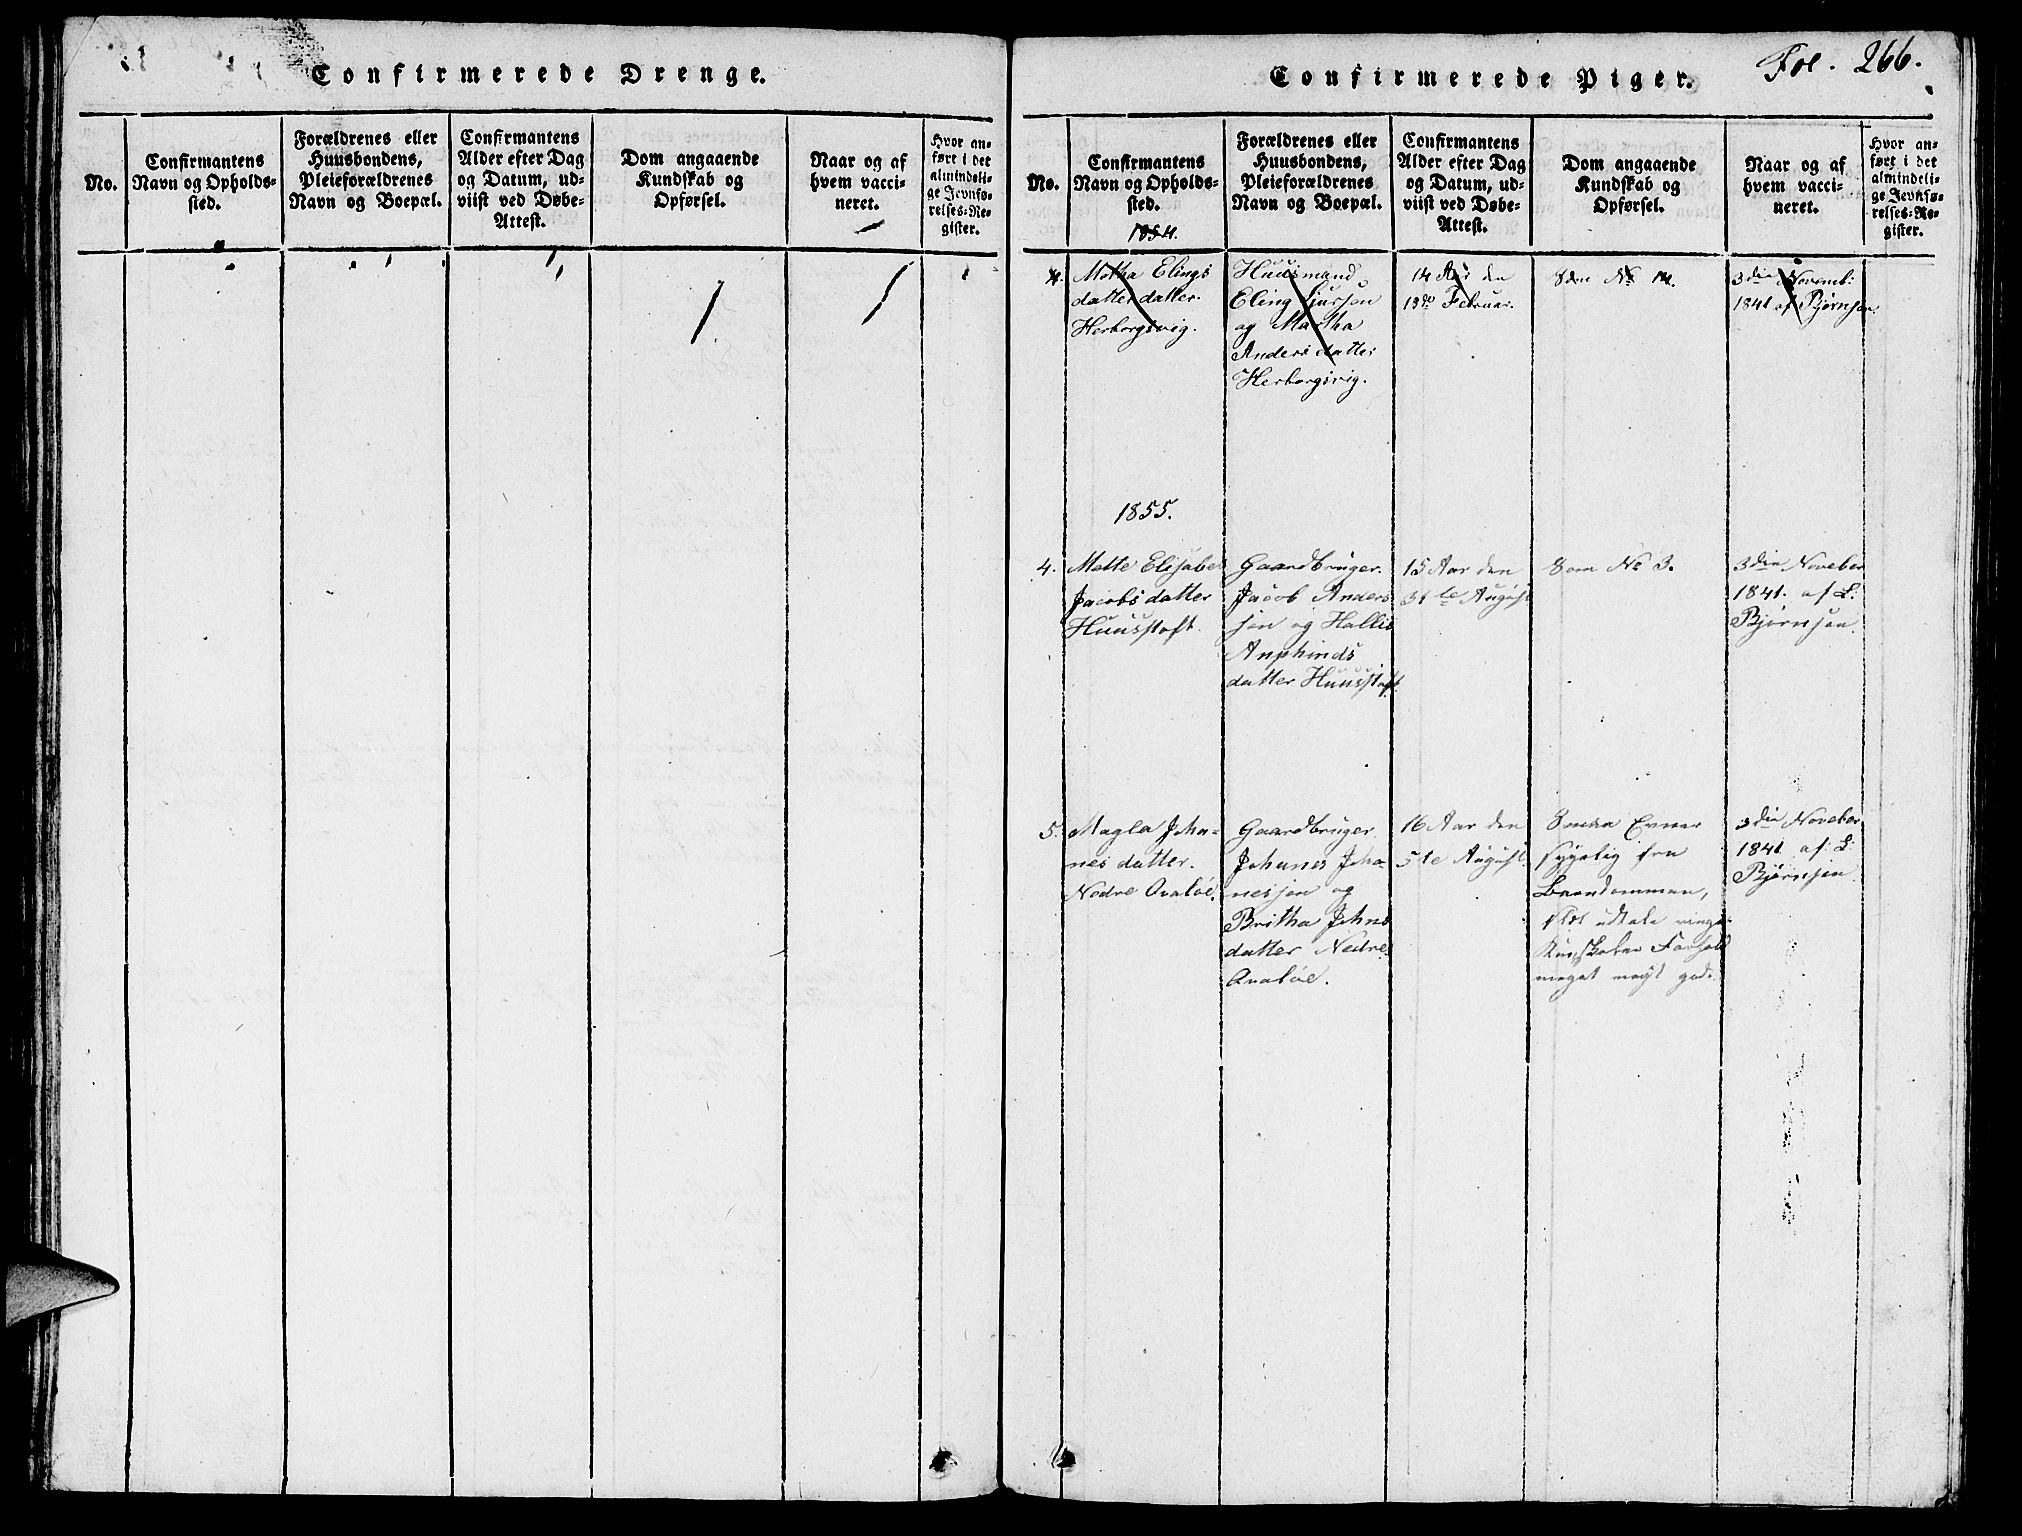 Confirmerede Drenge.
No.
Confirmantens
Navn og Opholds-
sted.
Forældrenes eller
Huusbondens,
Pleieforældrenes
Navn og Boepæl.
Confirmantens
Alder efter Dag
og Datum, ud-
viist ved Døbe-
Attest.
Dom angaaende
Kundskab og
Opførsel.
Naar og af
hvem vacci-
neret.
Hvor an-
ført i det
almindeli-
ge Jevnfø-
relses-Re-
gister.
Confirmerede Piger.
Fol. 266.
No.
Confirmantens
Navn og Opholds-
sted.
Forældrenes eller
Huusbondens,
Pleieforældrenes
Navn og Boepæl.
Confirmantens
Alder efter Dag
og Datum, ud-
viist ved Døbe-
Attest.
Dom angaaende
Kundskab og
Opførsel.
Naar og af
hvem vacci-
neret.
Hvor an-
ført i det
almindeli-
ge Jevnfø-
relses-Re-
gister.
1854.
4.
Metha Elings
datter datter.
Herborgsvig.
Huusmand
Eling Sjursen
og Martha
Anders datter
Herborgsvig.
14 Aar den
13de Februar.
Som No 14.
3die Novemb:
1841 af Bjørnsen.
1855.
4.
Mette Elisabe
Jacobs datter
Huusstoft.
Gaardbruger.
Jacob Anders
sen og
datter Huusstoft
15 Aar den
31te August
Som No 3.
3die Noveber
1841. af L:
Bjørnsen.
5.
Magla Joha=
nes datter.
Nedre Qvaløe.
Gaardbruger
Johanes Joha
nessen og
Britha Johns
datter Nedre
Qvaløe.
16 Aar den
5te August.
Smaa Evner
sygelig fra
Barndommen,
ringe
meget godt.
3die Noveber
1841 af: L:
Bjørnsen.